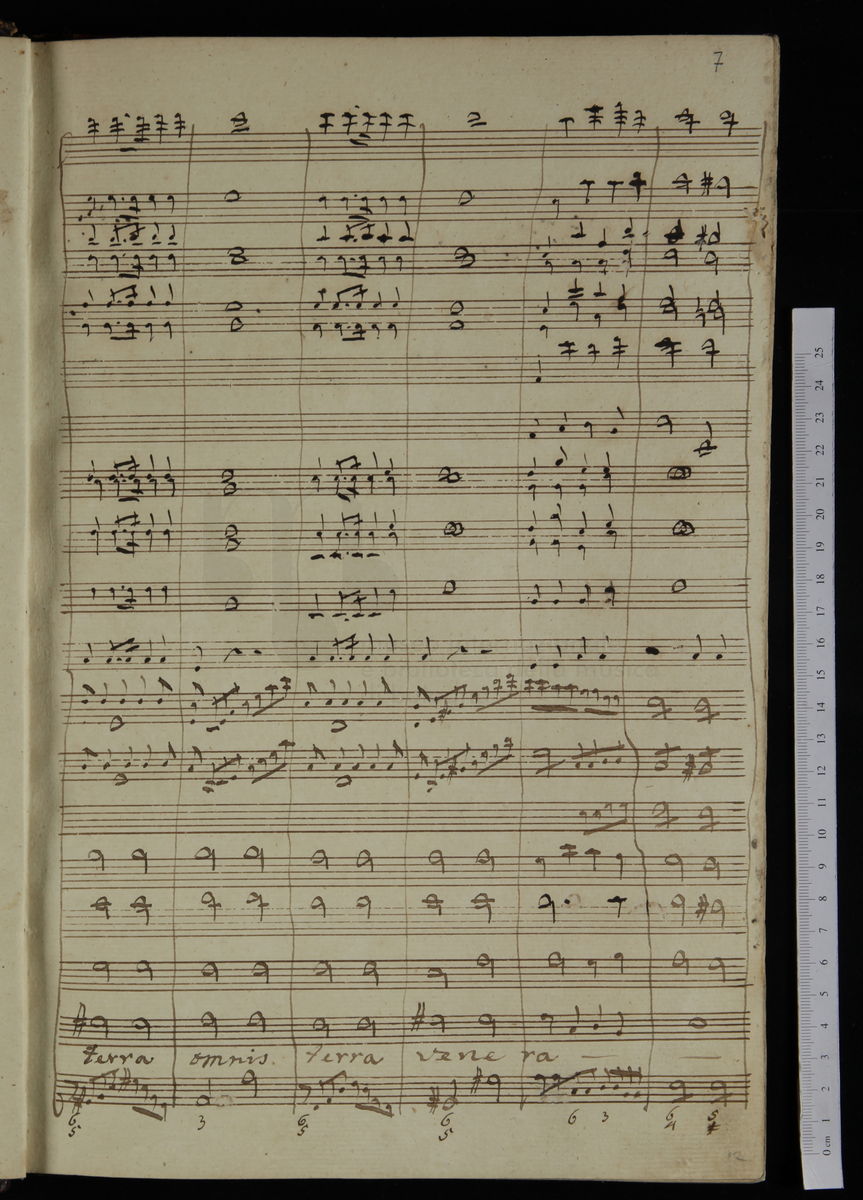 7
terra omnis. terra vene ra —
6 3 6 6 6 3 6 5
5 5 5 4 #
25
24
23
22
21
20
19
18
17
16
15
14
13
12
11
10
9
8
7
6
5
4
3
2
1
0 cm